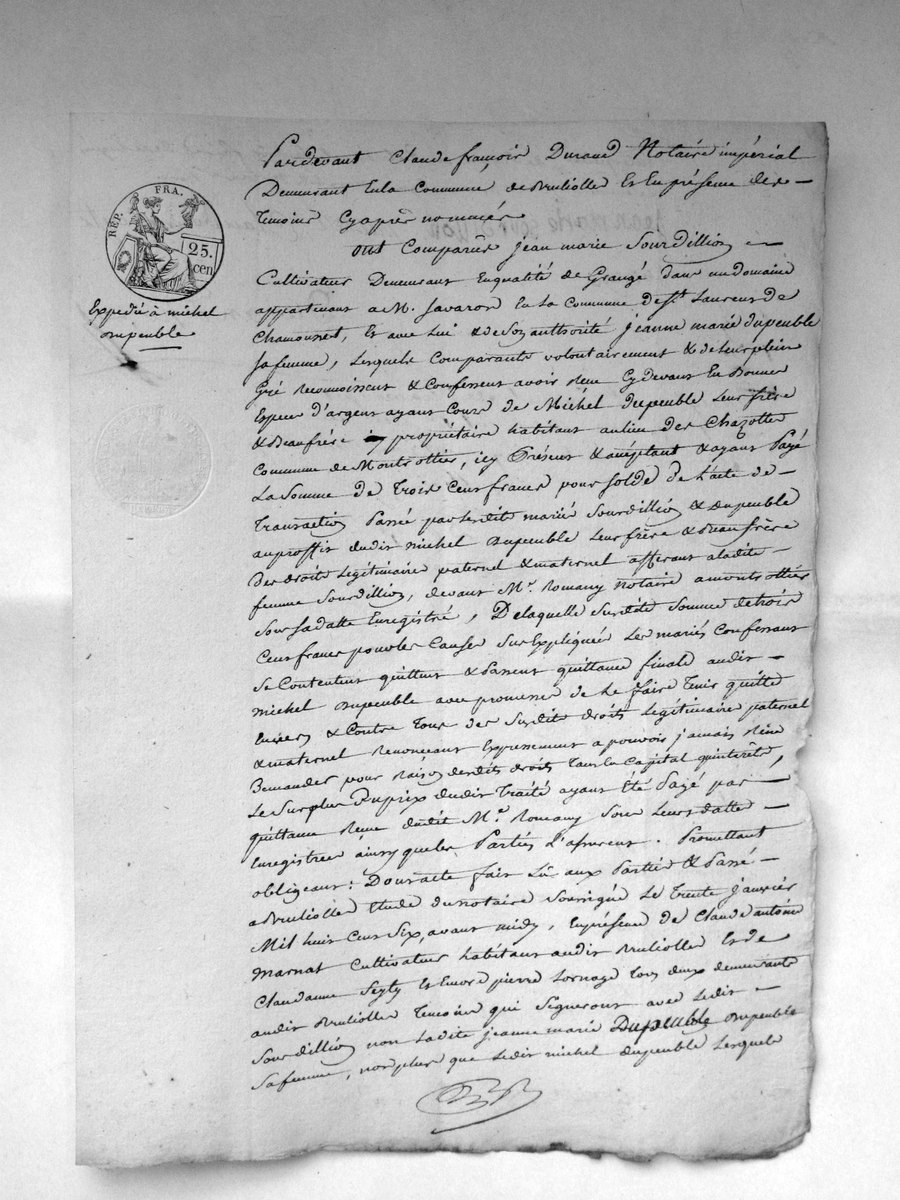 RÉP. FRA.
25.
cen
Expedié à michel
dupeuble
Pardevant Claude françois Durand Notaire impérial
Demeurant En la Commune de Brullolle Et En présence des
temoins Cyaprès nommés
Ont Comparus Jean marie Sourdillion
Cultivateur Demeurant Enqualité de Grangé dans un domaine
appartenant a M. Javaron En La Commune de St. Laurent de
Chamousset, Et avec Lui & de Son authorité Jeanne marie dupeuble
Sa femme, Lesquels Comparants volontairement & de Leur plein
Gré Reconnoissent & Confessent avoir Reçu Cydevant En Bonnes
Especes d'argent ayant Cours de Michel dupeuble Leur frère
& Beaufrère propriétaire habitant au lieu des Chazottes
Commune de Montrottier, icy Présent & acceptant & ayant Payé
La Somme de Trois Cent francs pour Solde de L'acte de
Transaction Passé par Lesdits mariés Sourdillion & dupeuble
au proffit dudit michel dupeuble Leur frère & Beaufrère
des droits Légitimaires paternel & maternel afferant a Ladite
femme Sourdillion, devant Mr. Romany Notaire a montrottier
Sous Sa datte Enregistré, De Laquelle Susdite Somme de trois
Cent francs pour Les Causes Sus Expliquées Les mariés Confessants
Se Contentent quittent & Passent quittance finale audit
michel dupeuble avec promesse de Le faire Tenir quitte
Envers & Contre Tous des Susdits droits Legitimaires paternel
& maternel Renonceant Expressement a pouvoir jamais Rien
Demander pour Raison desdits droits Tant En Capital qu'interêts,
Le Surplus Duprix dudit Traité ayant Eté Payé par
quittance Reçue dudit Mr. Romany Sous Leurs datte
Enregistrée ainsy que Les Parties L'assurent. Promettant
obligeant: Dont acte fait Lû aux Parties & Passé
a Brullolle Etude du Notaire Soussigné Le Trente Janvier
Mil huit Cent Six, avant midy, En présence de Claude antoine
Marnat Cultivateur habitant audit Brullolle Et de
pierre Lornage tous deux demeurants
audit Brullolle Temoins qui Signeront avec Ledit
Sourdillion non Ladite Jeanne marie Dupeuble dupeuble
Sa femme, non plus que Ledit michel dupeuble Lesquels